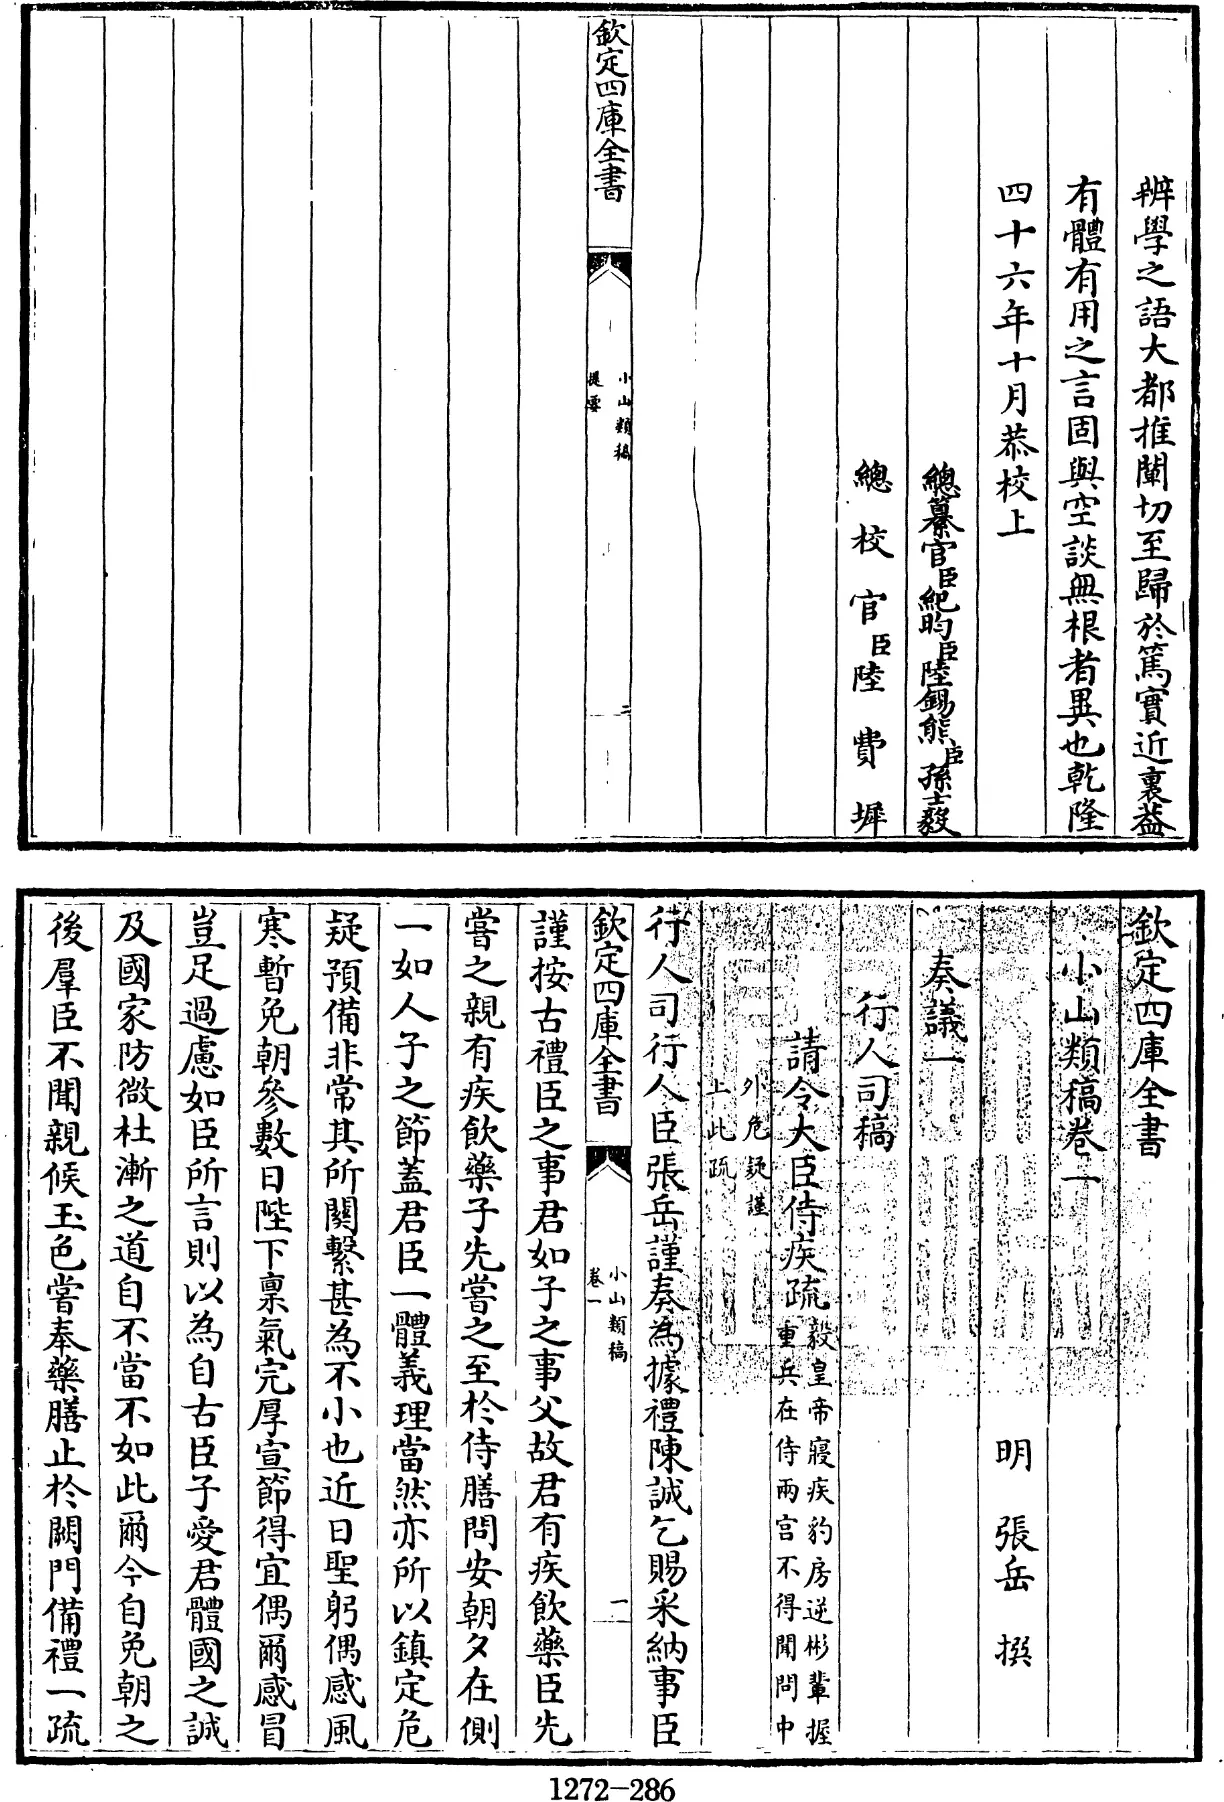 辨學之語大都推闡切至歸於篤實近裏葢
有體有用之言固與空談無根者異也乾隆
四十六年十月恭校上
總纂官臣紀昀臣陸錫熊臣孫士毅
總校官臣陸費墀
欽定四庫全書
小山類稿
提要
二
欽定四庫全書
小山類稿卷一
明 張岳 撰
奏議一
行人司稿
請令大臣侍疾疏 毅皇帝寢疾豹房逆彬輩握
重兵在侍兩宫不得聞問中
外危疑謹
上此疏
行人司行人臣張岳謹奏為據禮陳誠乞賜采納事臣
欽定四庫全書
小山類稿
卷一
一
謹按古禮臣之事君如子之事父故君有疾飲藥臣先
嘗之親有疾飲藥子先嘗之至於侍膳問安朝夕在側
一如人子之節蓋君臣一體義理當然亦所以鎮定危
疑預備非常其所關繫甚為不小也近日聖躬偶感風
寒暫免朝參數日陛下稟氣完厚宣節得宜偶爾感冒
豈足過慮如臣所言則以為自古臣子愛君體國之誠
及國家防微杜漸之道自不當不如此爾今自免朝之
後羣臣不聞親候玉色嘗奉藥膳止於闕門備禮一疏
1272-286